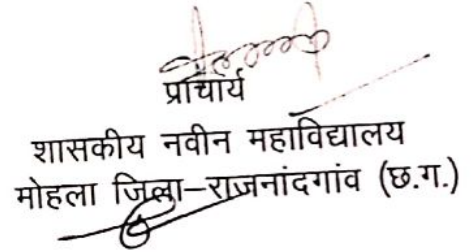 प्राचार्य
शासकीय नवीन महाविद्यालय
मोहला जिला–राजनांदगांव (छ.ग.)